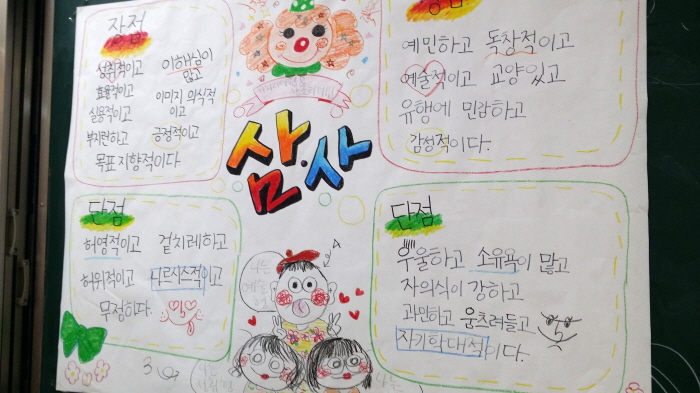 장점
성취적이고 이해심이 많고
효용적이고 이미지 의식적이고
실용적이고
부지런하고 긍정적이고
목표 지향적이다
삼.사
예민하고 독창적이고
예술적이고 교양있고
유행에 민감하고
감성적이다.
단점
허영적이고 겉치레하고
허위적이고 나르시스적이고
무정하다.
단점
우울하고 소유욕이 많고
자의식이 강하고
과민하고 움츠려들고
자기학대적이다.
나는
A
3